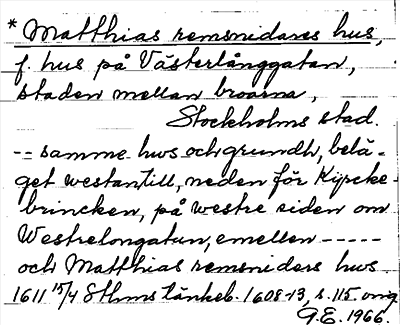 * Matthias remsnidares hus,
f. hus på Västerlånggatan,
staden mellan broarna,
Stockholms stad.
-- samme hws och grundh, belä-
get westantill, neden för Kyrcke-
brincken, på westre siden om
Westrelongatun, emellen -----
och Matthias remsniders hws
1611 15/4 Sthms tänkeb. 1608-13, s. 115. orig
G.E. 1966.